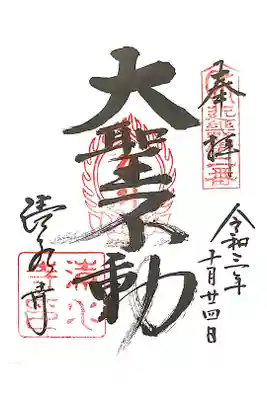 奉拝
令和三年
十月廿四日
大聖不動
清水寺